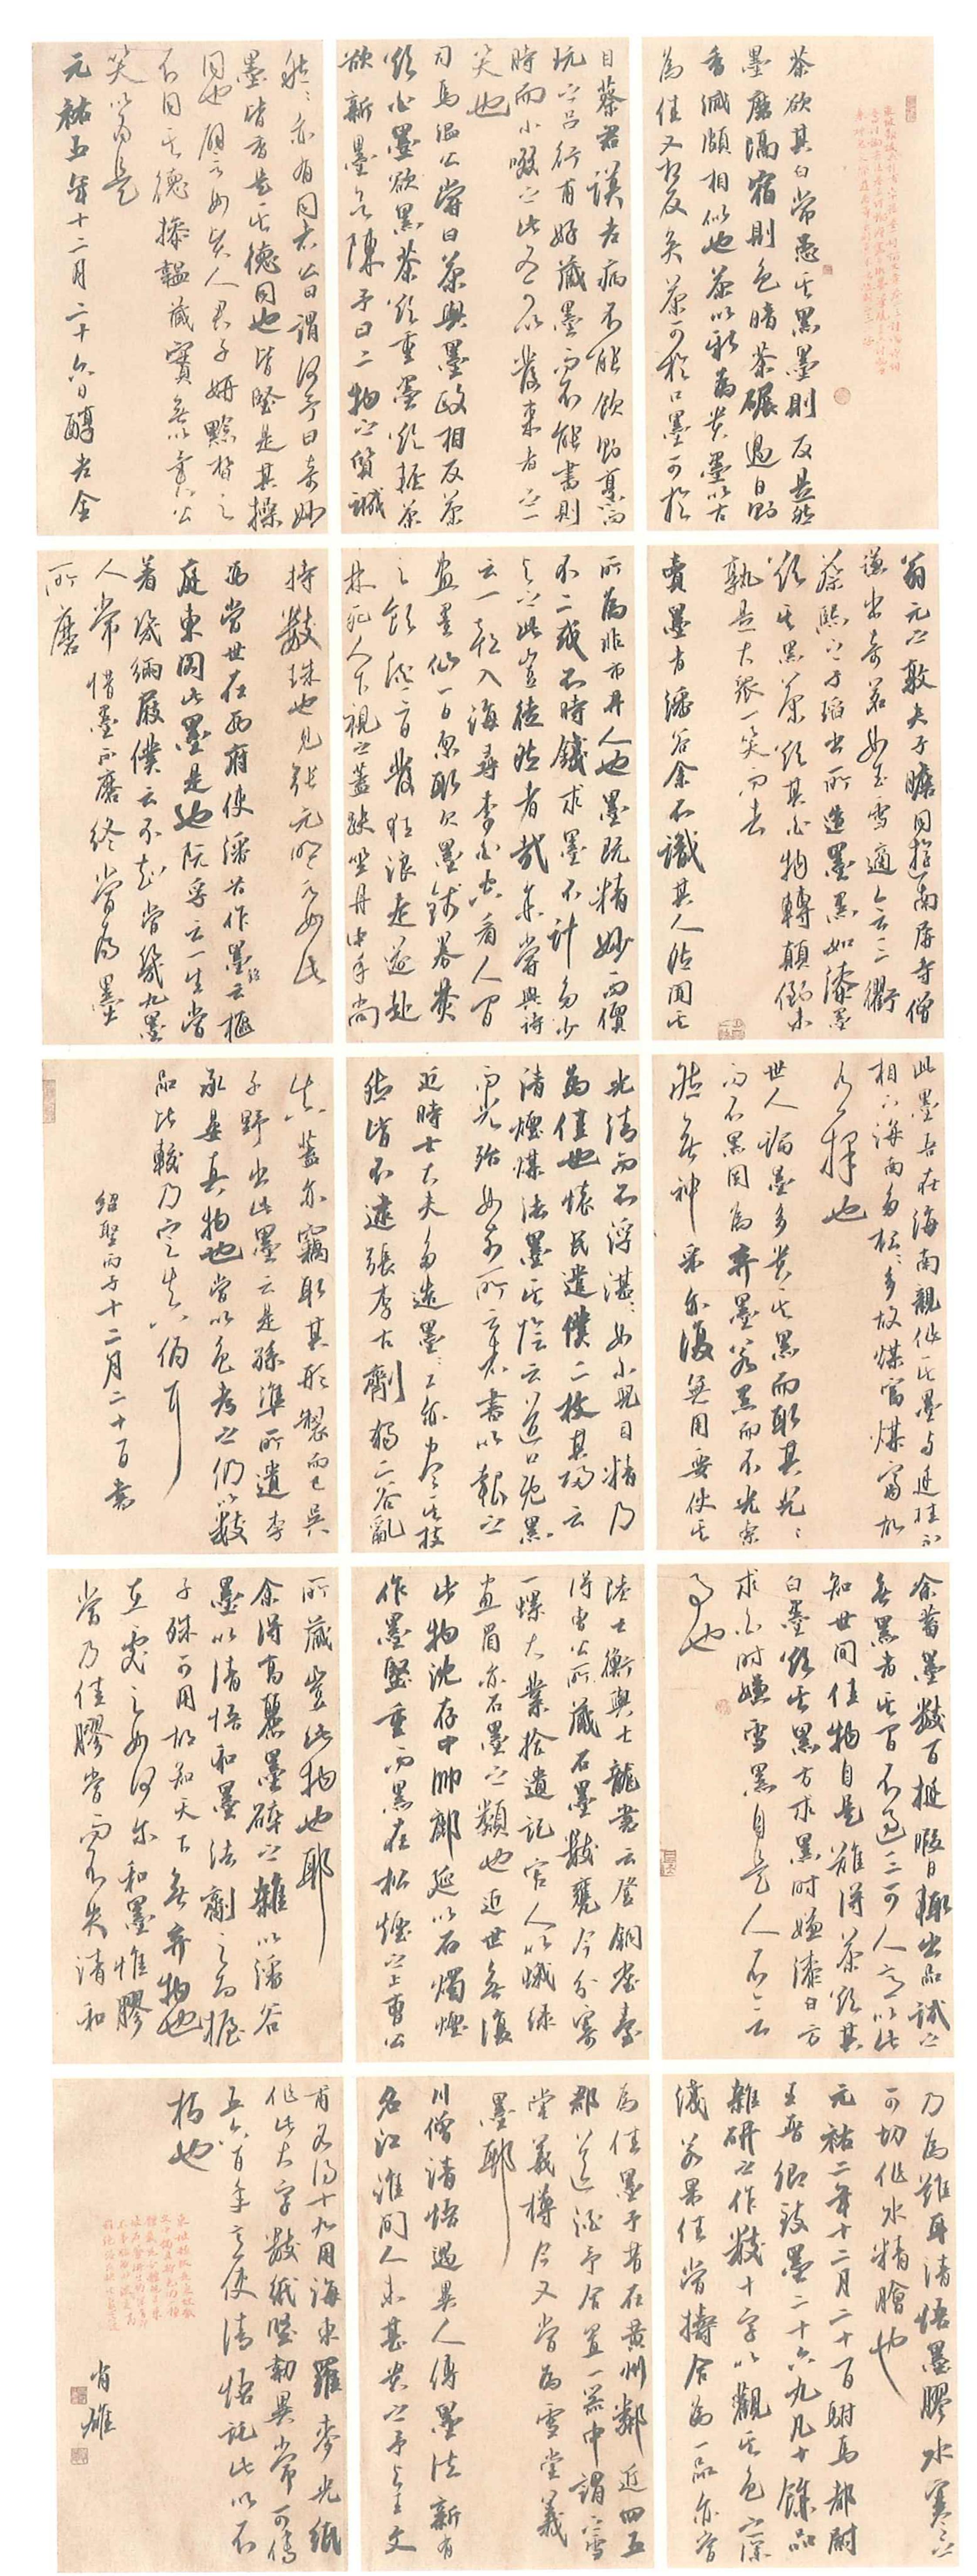 茶欲其白常患其黑墨則反是然
墨磨隔宿則色暗茶碾過日則
香減頗相似也茶以新為貴墨以古
為佳又相反矣茶可於口墨可於
目蔡君謨老病不能飲則烹而
玩之呂行甫好藏墨而不能書則
時而小啜之此又可以發來者之一
笑也
司馬溫公嘗曰茶與墨政相反茶
欲白墨欲黑茶欲重墨欲輕茶
欲新墨欲陳予曰二物之質誠
然亦有同者公曰謂何予曰奇妙
墨皆香是其德同也皆堅是其操
同也譬如賢人君子妍黔皙之
不同其德操韞藏實無以異公
笑以為是
元祐五年十二月二十六日醇老全
翁元之敦夫子瞻同遊南屏寺僧
謙出奇茗如玉雪適會三衢
蔡熙之子瑫出所造墨黑如漆墨
欲其黑茶欲其白物轉顛倒未
孰是大眾一笑而去
賣墨者潘谷余不識其人然聞其
所為非市井人也墨既精妙而價
不二或不持錢求墨不計多少
與之此豈徒然者哉余嘗與詩
云一朝入海尋李白空看人間
畫墨仙一日忽取欠墨錢券焚
之飲酒三日發狂浪走遂赴
井死人下視之蓋趺坐井中手尚
持數珠也見張元明言如此
當世在西府使潘谷作墨銘云樞
庭東閣此墨是也阮孚云一生當
著幾緉屐僕云不知當幾丸墨
人常惜墨不磨終當為墨
所磨
此墨吾在海南親作其墨與廷珪不
相下海南多松松多故煤富煤富故
有擇也
世人論墨多貴其黑而取其光光
而不黑固為棄墨若黑而不光索
然無神采亦復無用要使其
光清而不浮湛湛如小兒目精乃
為佳也懷民遺僕二枚其陽云
清煙煤法墨其陰云道卿既黑
而光殆如前所云者書以報之
近時士大夫多造墨墨工亦盡其技
然皆不逮張李古劑獨二谷亂
真蓋亦竊取其形製而已吳
子野出此墨云是孫準所遺李
承晏真物也當以色考之仍以數
品比較乃定真偽耳
紹聖丙子十二月二十一日書
余蓄墨數百挺暇日輒出品試之
無黑者其間不過一二可人意以此
知世間佳物自是難得茶欲其
白墨欲其黑方求黑時嫌漆白方
求白時嫌雪黑自是人不會
事也
陸士衡與士龍書云登銅雀臺
得曹公所藏石墨數甕今分寄
一螺大業拾遺記宮人以蛾綠
畫眉亦石墨之類也近世無復
此物沈存中帥鄜延以石燭煙
作墨堅重而黑在松煙之上曹公
所藏豈此物也耶
余得高麗墨碎之雜以潘谷
墨以清悟和墨法劑之為握
子殊可用故知天下無棄物也
在處之如何爾和墨惟膠
當乃佳膠當而不失清和
乃為難耳清悟墨膠水寒之
可切作水精膾也
元祐二年十二月二十一日駙馬都尉
王晉卿致墨二十六丸凡十餘品
雜研之作數十字以觀其色之深
淺若果佳當擣合為一品亦當
為佳墨予昔在黃州鄰近四五
郡送酒予合置一器中謂之雪
堂義樽今又當為雪堂義
墨耶
川僧清悟遇異人傳墨法新有
名江淮間人未甚貴之予與王文
甫各得十丸用海東羅麥光紙
作此大字數紙堅韌異常可傳
五六百年意使清悟託此以不
朽也
肖雄